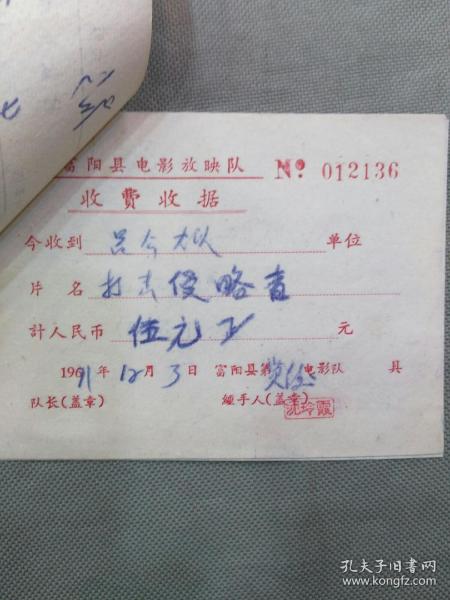 富阳县电影放映队 No. 012136
收费收据
今收到 吕今大队 单位
片名 打击侵略者
計人民币 伍元正 元
1971年12月3日 富阳县第 电影队 具
队长(盖章) 經手人(盖章)
沈玲霞
孔夫子旧书网
www.kongfz.com